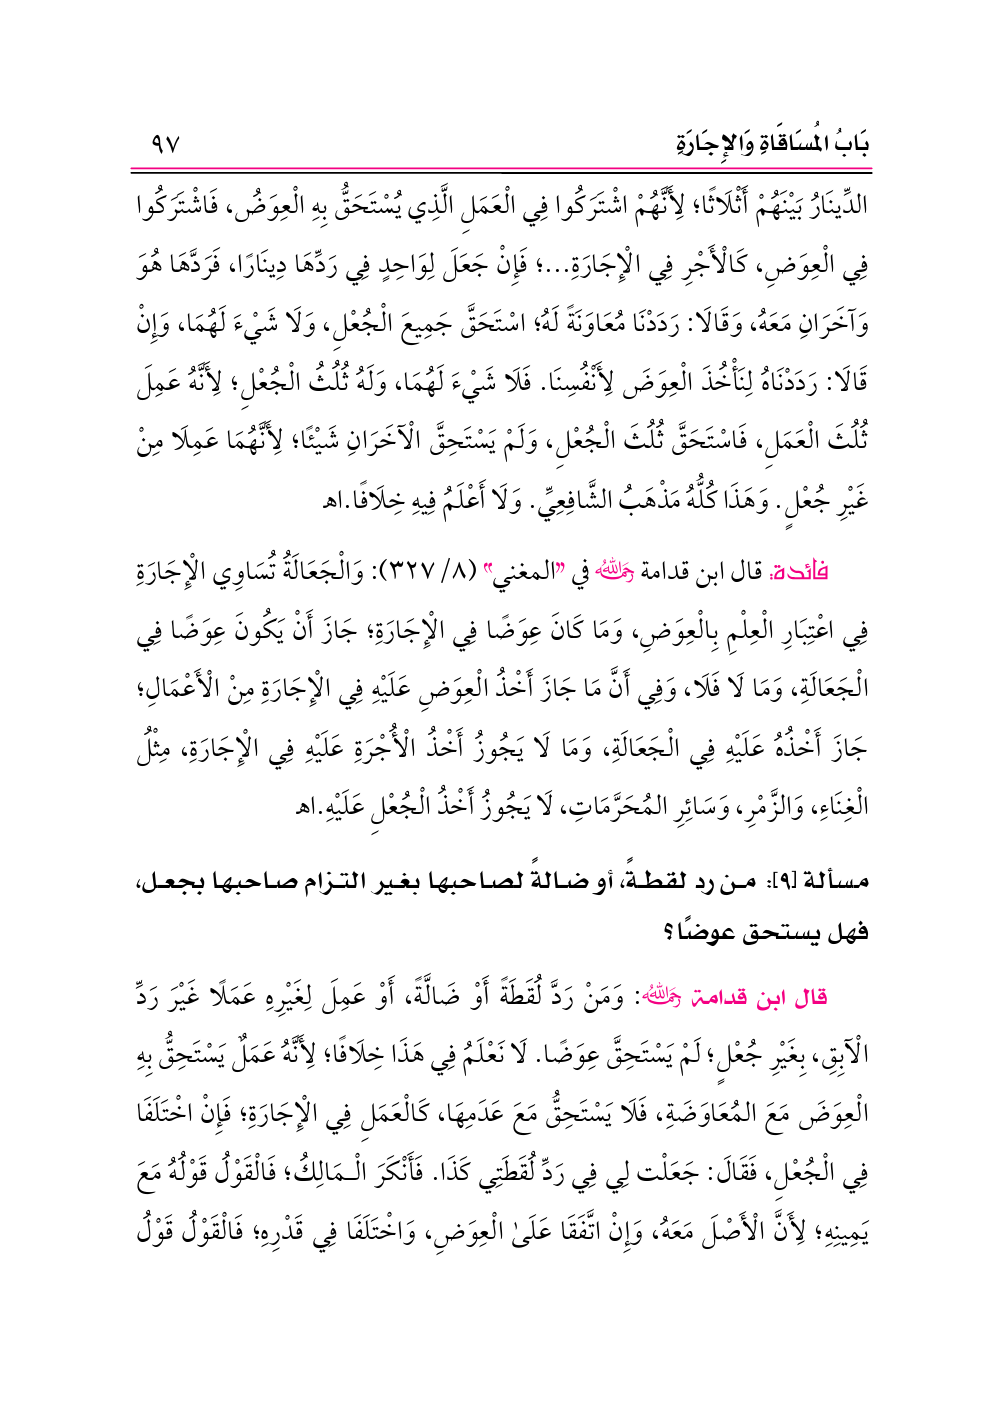 بَابُ الْمُسَاقَاةِ وَالإِجَارَةِ
٩٧
الدِّينَارُ بَيْنَهُمْ أَثْلَاثًا؛ لِأَنَّهُمْ اشْتَرَكُوا فِي الْعَمَلِ الَّذِي يُسْتَحَقُّ بِهِ الْعِوَضُ، فَاشْتَرَكُوا
فِي الْعِوَضِ، كَالْأَجْرِ فِي الْإِجَارَةِ...؛ فَإِنْ جَعَلَ لِوَاحِدٍ فِي رَدِّهَا دِينَارًا، فَرَدَّهَا هُوَ
وَآخَرَانِ مَعَهُ، وَقَالَا: رَدَدْنَا مُعَاوَنَةً لَهُ؛ اسْتَحَقَّ جَمِيعَ الْجُعْلِ، وَلَا شَيْءَ لَهُمَا، وَإِنْ
قَالَا: رَدَدْنَاهُ لِنَأْخُذَ الْعِوَضَ لِأَنْفُسِنَا. فَلَا شَيْءَ لَهُمَا، وَلَهُ ثُلُثُ الْجُعْلِ؛ لِأَنَّهُ عَمِلَ
ثُلُثَ الْعَمَلِ، فَاسْتَحَقَّ ثُلُثَ الْجُعْلِ، وَلَمْ يَسْتَحِقَّ الْآخَرَانِ شَيْئًا؛ لِأَنَّهُمَا عَمِلَا مِنْ
غَيْرِ جُعْلٍ. وَهَذَا كُلُّهُ مَذْهَبُ الشَّافِعِيِّ. وَلَا أَعْلَمُ فِيهِ خِلَافًا.اهـ
فائدة: قال ابن قدامة رَحِمَهُ اللهُ في "المغني" (٨/ ٣٢٧): وَالْجَعَالَةُ تُسَاوِي الْإِجَارَةِ
فِي اعْتِبَارِ الْعِلْمِ بِالْعِوَضِ، وَمَا كَانَ عِوَضًا فِي الْإِجَارَةِ؛ جَازَ أَنْ يَكُونَ عِوَضًا فِي
الْجَعَالَةِ، وَمَا لَا فَلَا، وَفِي أَنَّ مَا جَازَ أَخْذُ الْعِوَضِ عَلَيْهِ فِي الْإِجَارَةِ مِنْ الْأَعْمَالِ؛
جَازَ أَخْذُهُ عَلَيْهِ فِي الْجَعَالَةِ، وَمَا لَا يَجُوزُ أَخْذُ الْأُجْرَةِ عَلَيْهِ فِي الْإِجَارَةِ، مِثْلُ
الْغِنَاءِ، وَالزَّمْرِ، وَسَائِرِ المُحَرَّمَاتِ، لَا يَجُوزُ أَخْذُ الْجُعْلِ عَلَيْهِ.اهـ
مسألة [٩]: مـن رد لقطـةً، أو ضـالةً لصـاحبها بغـير التـزام صـاحبها بجعـل،
فهل يستحق عوضًا؟
قال ابن قدامة رَحِمَهُ اللهُ: وَمَنْ رَدَّ لُقَطَةً أَوْ ضَالَّةً، أَوْ عَمِلَ لِغَيْرِهِ عَمَلًا غَيْرَ رَدِّ
الْآبِقِ، بِغَيْرِ جُعْلٍ؛ لَمْ يَسْتَحِقَّ عِوَضًا. لَا نَعْلَمُ فِي هَذَا خِلَافًا؛ لِأَنَّهُ عَمَلٌ يَسْتَحِقُّ بِهِ
الْعِوَضَ مَعَ المُعَاوَضَةِ، فَلَا يَسْتَحِقُّ مَعَ عَدَمِهَا، كَالْعَمَلِ فِي الْإِجَارَةِ؛ فَإِنْ اخْتَلَفَا
فِي الْجُعْلِ، فَقَالَ: جَعَلْت لِي فِي رَدِّ لُقَطَتِي كَذَا. فَأَنْكَرَ الْـمَالِكُ؛ فَالْقَوْلُ قَوْلُهُ مَعَ
يَمِينِهِ؛ لِأَنَّ الْأَصْلَ مَعَهُ، وَإِنْ اتَّفَقَا عَلَىٰ الْعِوَضِ، وَاخْتَلَفَا فِي قَدْرِهِ؛ فَالْقَوْلُ قَوْلُ